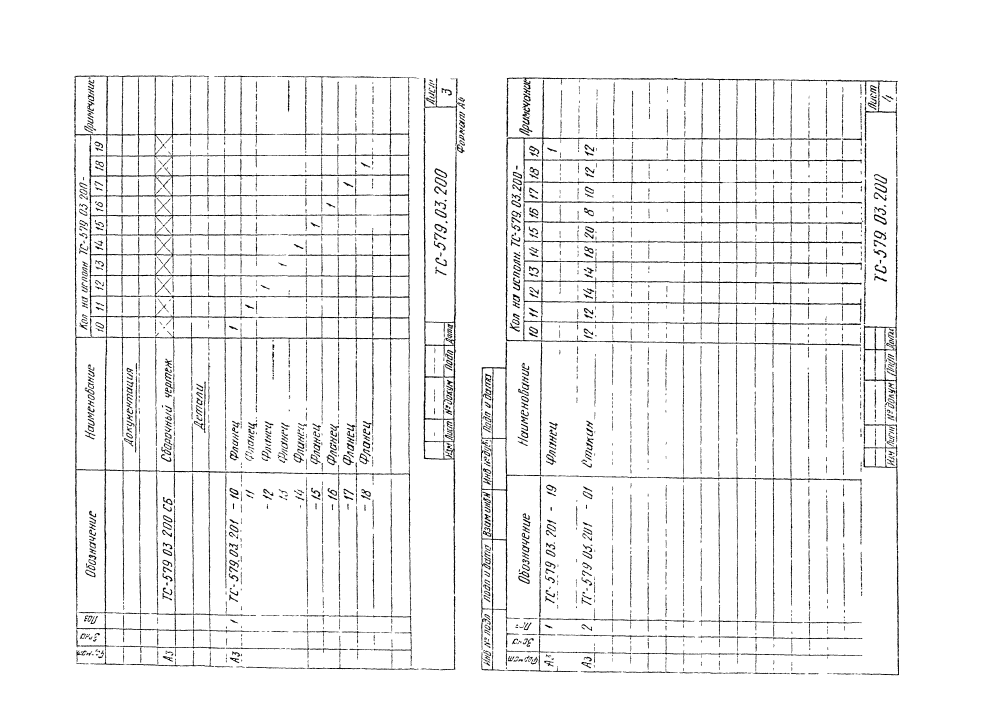 Формат Зона Поз Обозначение Наименование Кол на исполн ТС-579 03 200- Примечание
10 11 12 13 14 15 16 17 18 19
Документация
А3 ТС-579 03 200 СБ Сборочный чертеж
Детали
А3 1 ТС-579 03 201 - 10 Фланец 1
11 Фланец 1
- 12 Фланец 1
13 Фланец 1
- 14 Фланец 1
- 15 Фланец 1
- 16 Фланец 1
- 17 Фланец 1
- 18 Фланец 1
Изм Лист № докум Подп Дата
ТС-579.03.200
Лист
3
Формат А4
Инв № подл Подп и дата Взам инв № Инв № дубл Подп и дата
Формат Зона Поз Обозначение Наименование Кол на исполн. ТС-579.03.200- Примечание
10 11 12 13 14 15 16 17 18 19
А3 1 ТС-579 03.201 - 19 Фланец 1
А3 2 ТС-579 03.201 - 01 Стакан 12 12 14 14 18 20 8 10 12 12
Изм Лист № докум Подп Дата
ТС-579.03.200
Лист
4